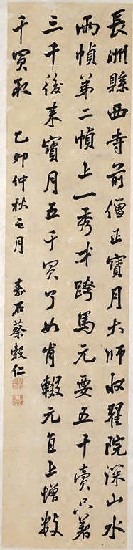 長洲縣西寺前僧正寶月大師收翟院深山水
兩幀第二幀上一秀才跨馬元要五千賣只著
三千後來寶月五千買了如肯輟元直上增數
千買取
乙卯仲秋之月
石蔡 仁